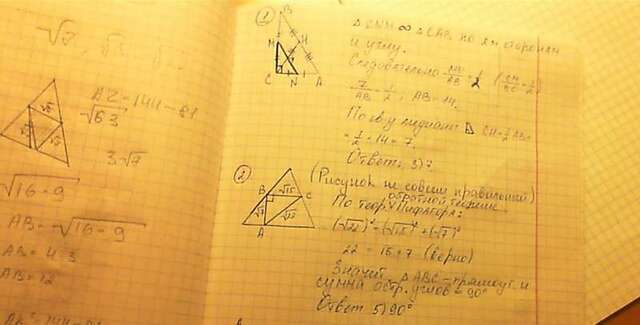 √7, √3
AZ = 144 - 81
√63
3√7
√16 · 9
AB = √16 · 9
AB = 4 · 3
AB = 12
①
B
M
H
C
N
A
△CNM ∞ △CAB по 2м сторонам
и углу.
Следовательно
AB = 14
По св-у медианы
= 1/2 · 14 = 7
Ответ: 3) 7
②
B
√15
C
√7
√22
A
(Рисунок не совсем правильный)
По теор. обратной теореме Пифагора:
(√22)² = (√15)² + (√7)²
22 = 15 + 7 (верно)
Значит △ABC - прямоуг. и
сумма остр. углов = 90°
Ответ 5) 90°